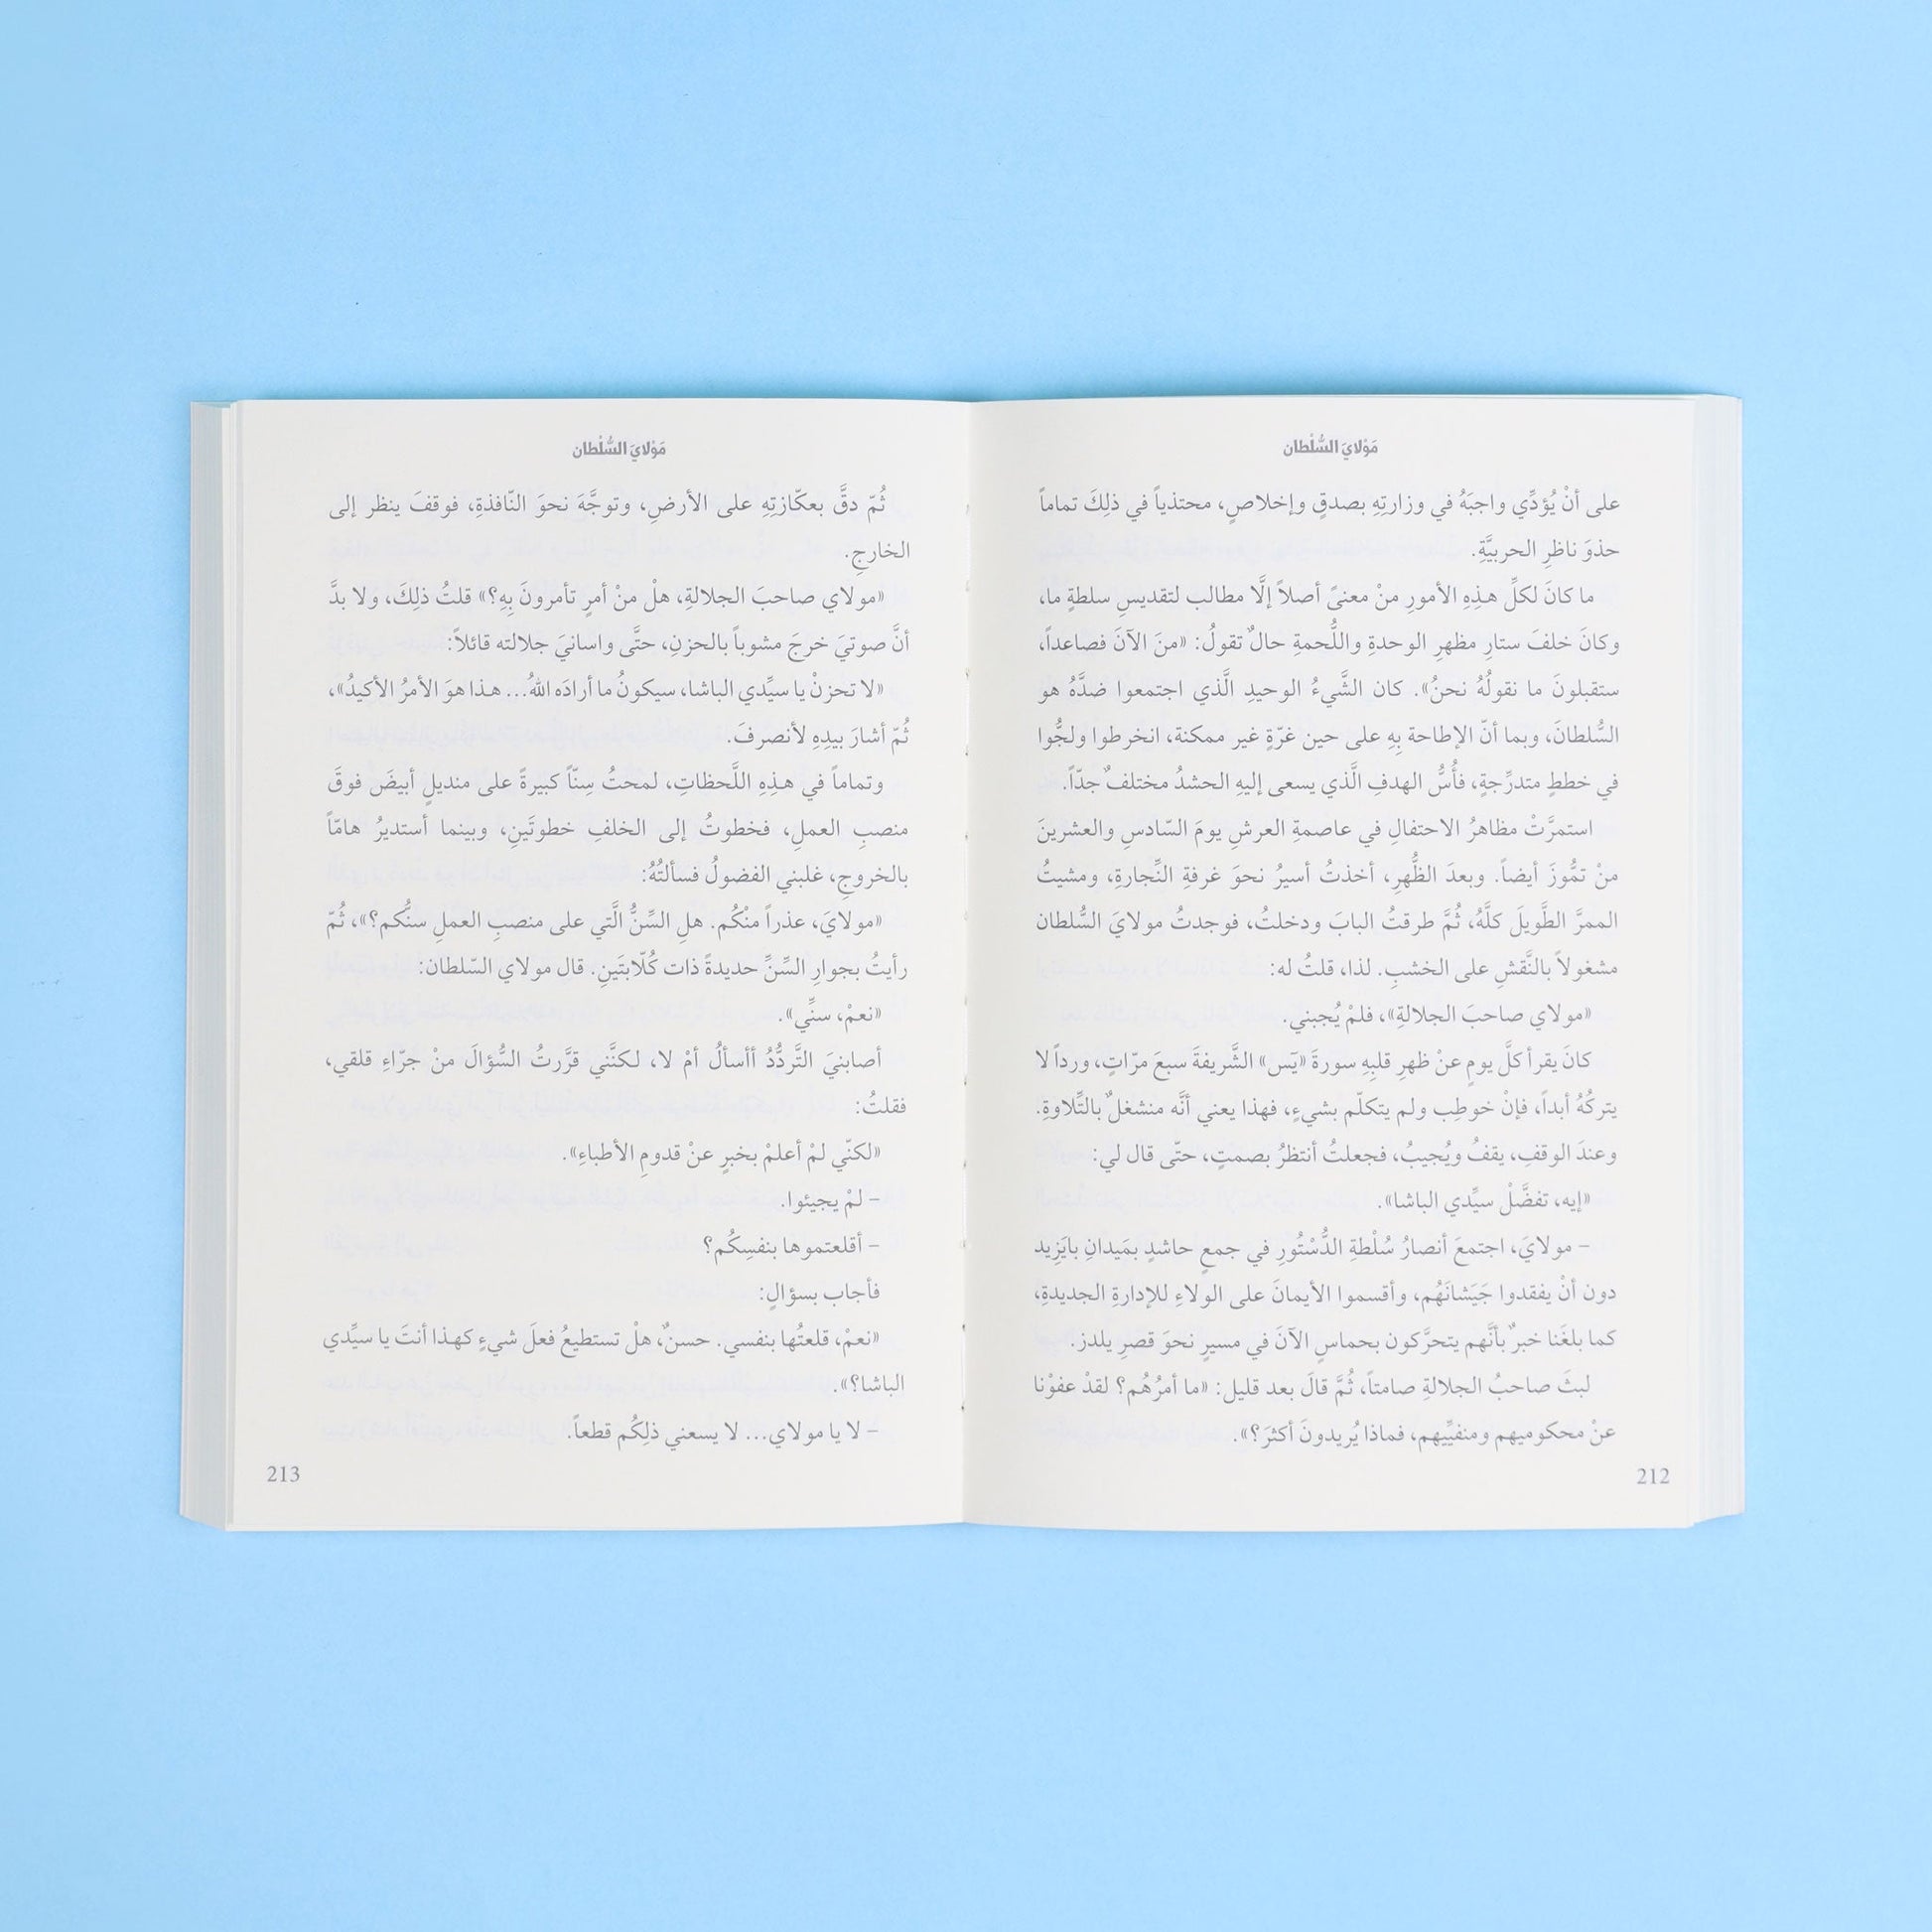 مَوْلايَ السُّلْطان
على أنْ يُؤدِّي واجبَهُ في وزارتِهِ بصدقٍ وإخلاصٍ، محتذياً في ذلِكَ تماماً
حذوَ ناظرِ الحربيَّةِ.
ما كانَ لكلِّ هـذِهِ الأمورِ منْ معنىً أصلاً إلَّا مطالب لتقديسِ سلطةٍ ما،
وكانَ خلفَ ستارِ مظهرِ الوحدةِ واللُّحمةِ حالٌ تقولُ: «منَ الآنَ فصاعداً،
ستقبلونَ ما نقولُهُ نحنُ». كان الشَّيءُ الوحيدِ الَّذي اجتمعوا ضدَّهُ هو
السُّلطانَ، وبما أنّ الإطاحة بِهِ على حين غرّةٍ غير ممكنة، انخرطوا ولجُّوا
في خططٍ متدرِّجةٍ، فأُسُّ الهدفِ الَّذي يسعى إليهِ الحشدُ مختلفٌ جدّاً.
استمرَّتْ مظاهرُ الاحتفالِ في عاصمةِ العرشِ يومَ السّادسِ والعشرينَ
منْ تمُّوزَ أيضاً. وبعدَ الظُّهرِ، أخذتُ أسيرُ نحوَ غرفةِ النِّجارةِ، ومشيتُ
الممرَّ الطَّويلَ كلَّهُ، ثُمَّ طرقتُ البابَ ودخلتُ، فوجدتُ مولايَ السُّلطان
مشغولاً بالنَّقشِ على الخشبِ. لذا، قلتُ له:
«مولاي صاحبَ الجلالةِ»، فلمْ يُجبني.
كانَ يقرأ كلَّ يومٍ عنْ ظهرِ قلبِهِ سورةَ «يَس» الشَّريفةَ سبعَ مرّاتٍ، ورداً لا
يتركُهُ أبداً، فإنْ خوطِب ولم يتكلّم بشيءٍ، فهذا يعني أنَّه منشغلٌ بالتِّلاوةِ.
وعندَ الوقفِ، يقفُ ويُجيبُ، فجعلتُ أنتظرُ بصمتٍ، حتّى قال لي:
«إيه، تفضَّلْ سيِّدي الباشا».
– مولايَ، اجتمعَ أنصارُ سُلْطةِ الدُّسْتُورِ في جمعٍ حاشدٍ بمَيدانِ بايَزِيد
دون أنْ يفقدوا جَيَشانَهُم، وأقسموا الأيمانَ على الولاءِ للإدارةِ الجديدةِ،
كما بلغَنا خبرٌ بأنَّهم يتحرَّكون بحماسٍ الآنَ في مسيرٍ نحوَ قصرِ يلدز.
لبثَ صاحبُ الجلالةِ صامتاً، ثُمَّ قالَ بعد قليل: «ما أمرُهُم؟ لقدْ عفوْنا
عنْ محكوميهم ومنفيِّيهم، فماذا يُريدونَ أكثرَ؟».
212
مَوْلايَ السُّلْطان
ثُمّ دقَّ بعكّازتِهِ على الأرضِ، وتوجَّهَ نحوَ النّافذةِ، فوقفَ ينظر إلى
الخارجِ.
«مولاي صاحبَ الجلالةِ، هلْ منْ أمرٍ تأمرونَ بِهِ؟» قلتُ ذلِكَ، ولا بدَّ
أنَّ صوتيَ خرجَ مشوباً بالحزنِ، حتَّى واسانيَ جلالته قائلاً:
«لا تحزنْ يا سيِّدي الباشا، سيكونُ ما أرادَه اللهُ... هـذا هوَ الأمرُ الأكيدُ»،
ثُمّ أشارَ بيدِهِ لأنصرفَ.
وتماماً في هـذِهِ اللَّحظاتِ، لمحتُ سِنّاً كبيرةً على منديلٍ أبيضَ فوقَ
منصبِ العملِ، فخطوتُ إلى الخلفِ خطوتَينِ، وبينما أستديرُ هامّاً
بالخروجِ، غلبني الفضولُ فسألتُهُ:
«مولايَ، عذراً منْكُم. هلِ السِّنُّ الَّتي على منصبِ العملِ سنُّكم؟»، ثُمّ
رأيتُ بجوارِ السِّنِّ حديدةً ذات كُلّابتَينِ. قال مولاي السّلطان:
«نعمْ، سنِّي».
أصابنيَ التَّردُّدُ أأسألُ أمْ لا، لكنَّني قرَّرتُ السُّؤالَ منْ جرّاءِ قلقي،
فقلتُ:
«لكنّي لمْ أعلمْ بخبرٍ عنْ قدومِ الأطباءِ».
– لمْ يجيئوا.
– أقلعتموها بنفسِكُم؟
فأجاب بسؤالٍ:
«نعمْ، قلعتُها بنفسي. حسنٌ، هلْ تستطيعُ فعلَ شيءٍ كهـذا أنتَ يا سيِّدي
الباشا؟».
– لا يا مولاي... لا يسعني ذلِكُم قطعاً.
213